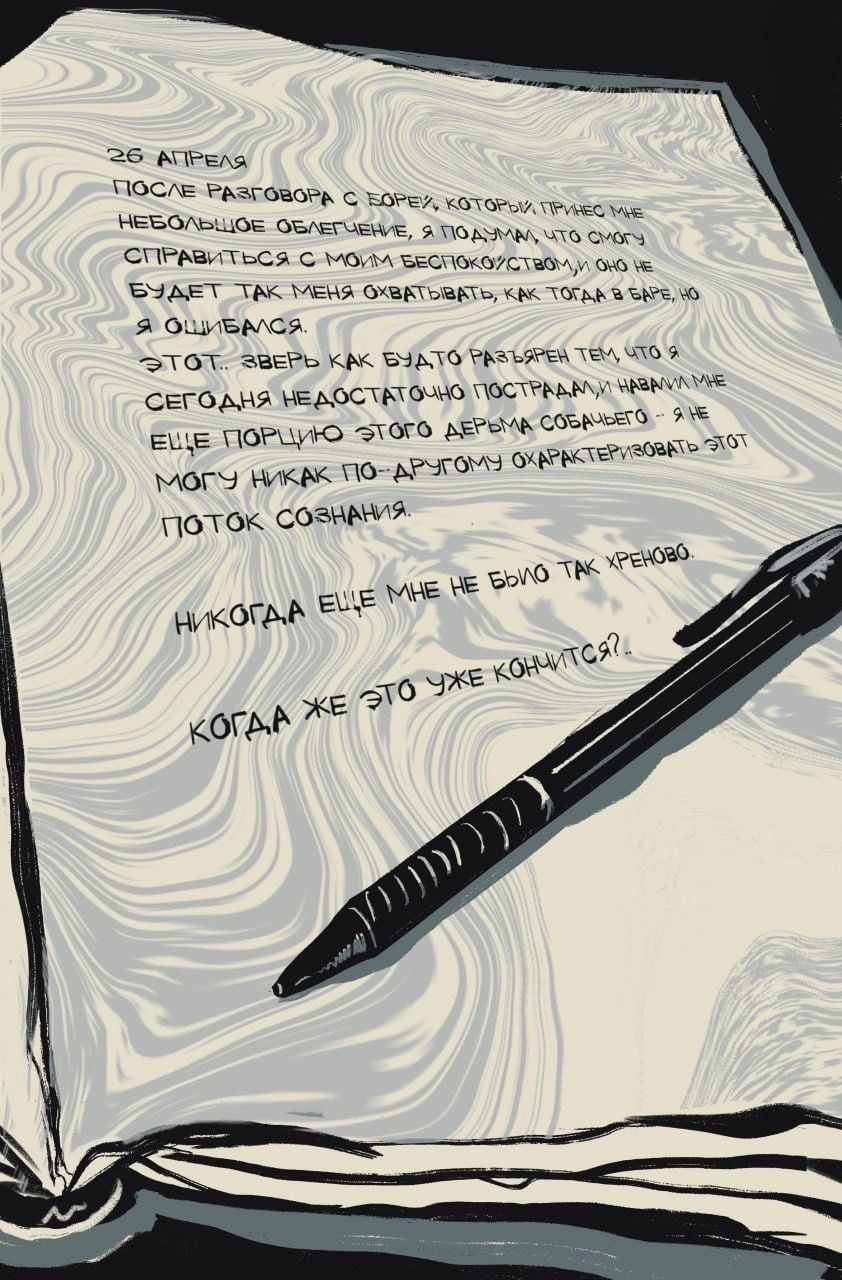 26 АПРЕЛЯ
ПОСЛЕ РАЗГОВОРА С БОРЕЙ, КОТОРЫЙ ПРИНЕС МНЕ
НЕБОЛЬШОЕ ОБЛЕГЧЕНИЕ, Я ПОДУМАЛ, ЧТО СМОГУ
СПРАВИТЬСЯ С МОИМ БЕСПОКОЙСТВОМ, И ОНО НЕ
БУДЕТ ТАК МЕНЯ ОХВАТЫВАТЬ, КАК ТОГДА В БАРЕ, НО
Я ОШИБАЛСЯ.
ЭТОТ.. ЗВЕРЬ КАК БУДТО РАЗЪЯРЕН ТЕМ, ЧТО Я
СЕГОДНЯ НЕДОСТАТОЧНО ПОСТРАДАЛ, И НАВАЛИЛ МНЕ
ЕЩЕ ПОРЦИЮ ЭТОГО ДЕРЬМА СОБАЧЬЕГО -- Я НЕ
МОГУ НИКАК ПО-ДРУГОМУ ОХАРАКТЕРИЗОВАТЬ ЭТОТ
ПОТОК СОЗНАНИЯ.
НИКОГДА ЕЩЕ МНЕ НЕ БЫЛО ТАК ХРЕНОВО.
КОГДА ЖЕ ЭТО УЖЕ КОНЧИТСЯ?..